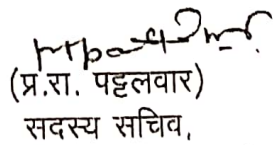 (प्र.रा. पट्टलवार)
सदस्य सचिव,